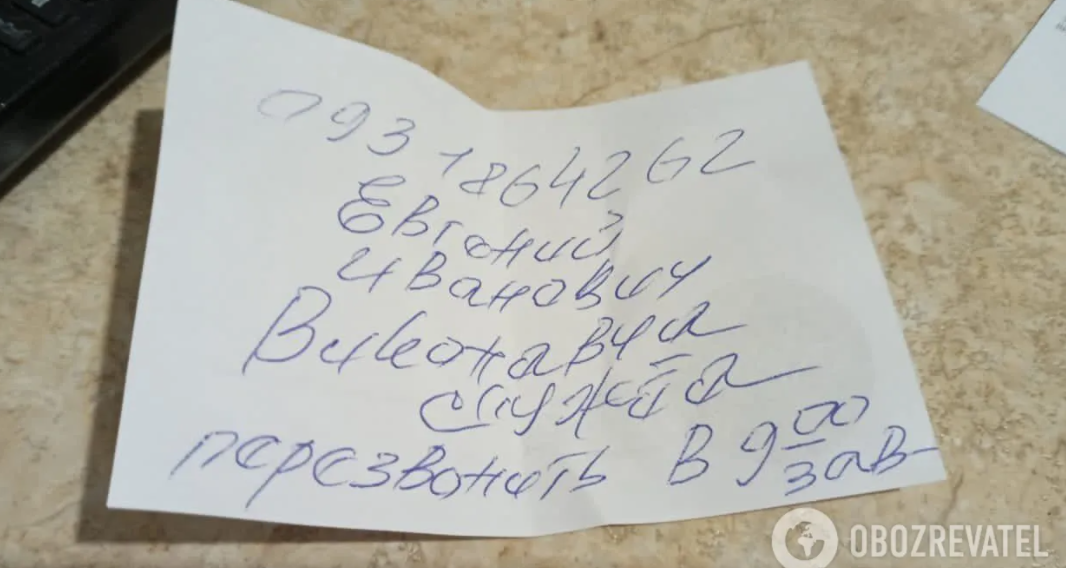 0931864262
Евгений
Иванович
Виконавча
служба
перезвонить в 9 00
завт
OBOZREVATEL